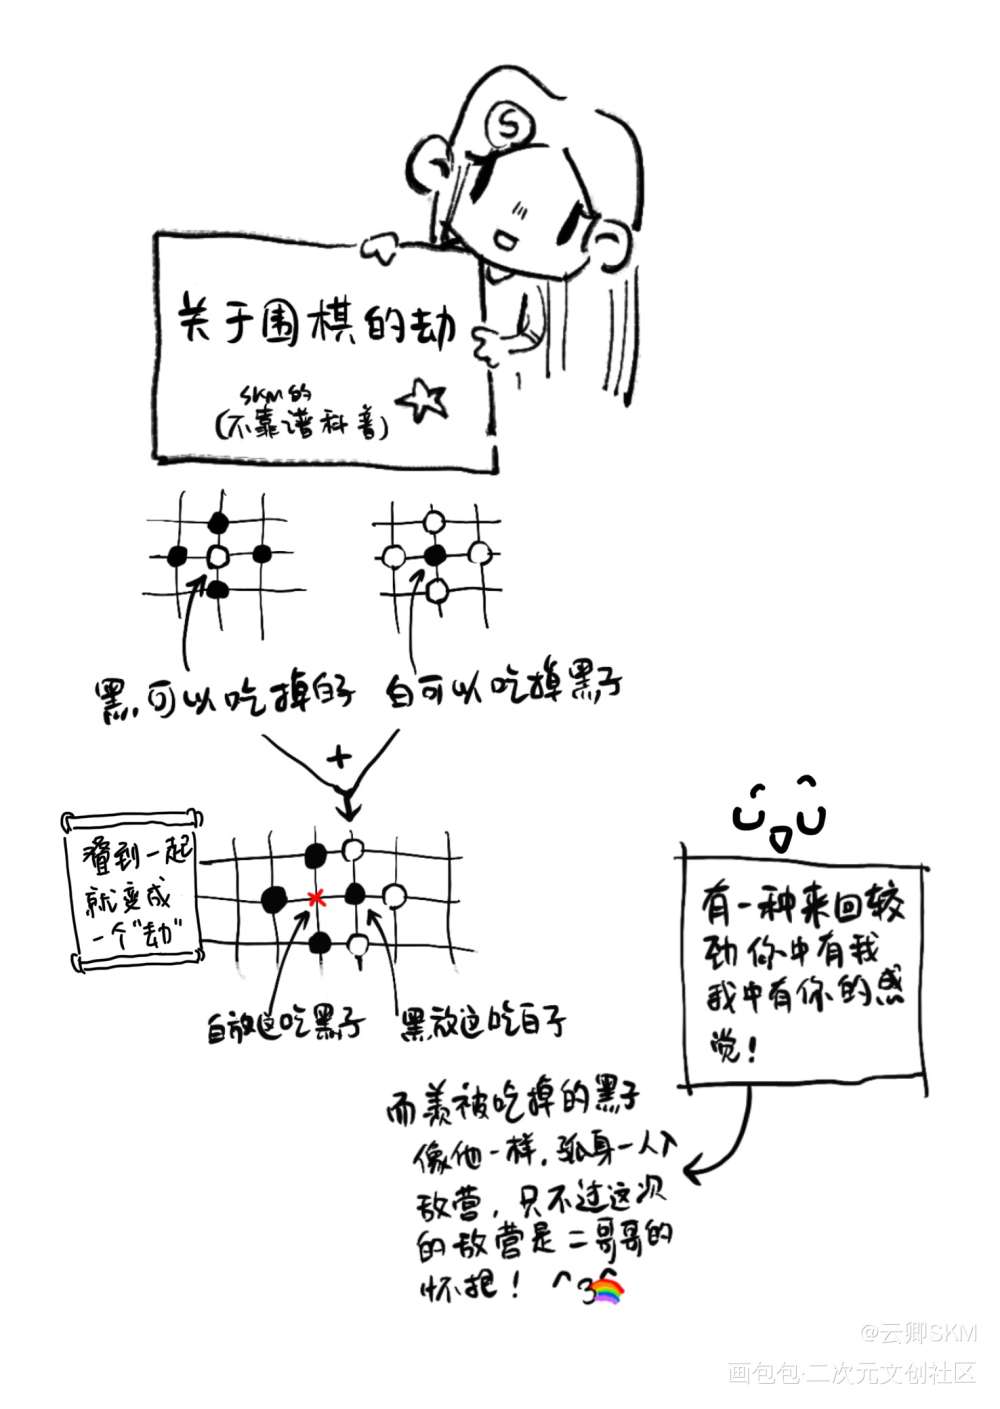 S
关于围棋的劫
SKM的
(不靠谱科普)
黑可以吃掉白子
白可以吃掉黑子
+
叠到一起
就变成
一个"劫"
白放这吃黑子
黑放这吃白子
有一种来回较
劲你中有我
我中有你的感
觉!
而羡被吃掉的黑子
像他一样,孤身一人入
敌营,只不过这次
的敌营是二哥哥的
怀抱! ^3^
@云卿SKM
画包包·二次元文创社区